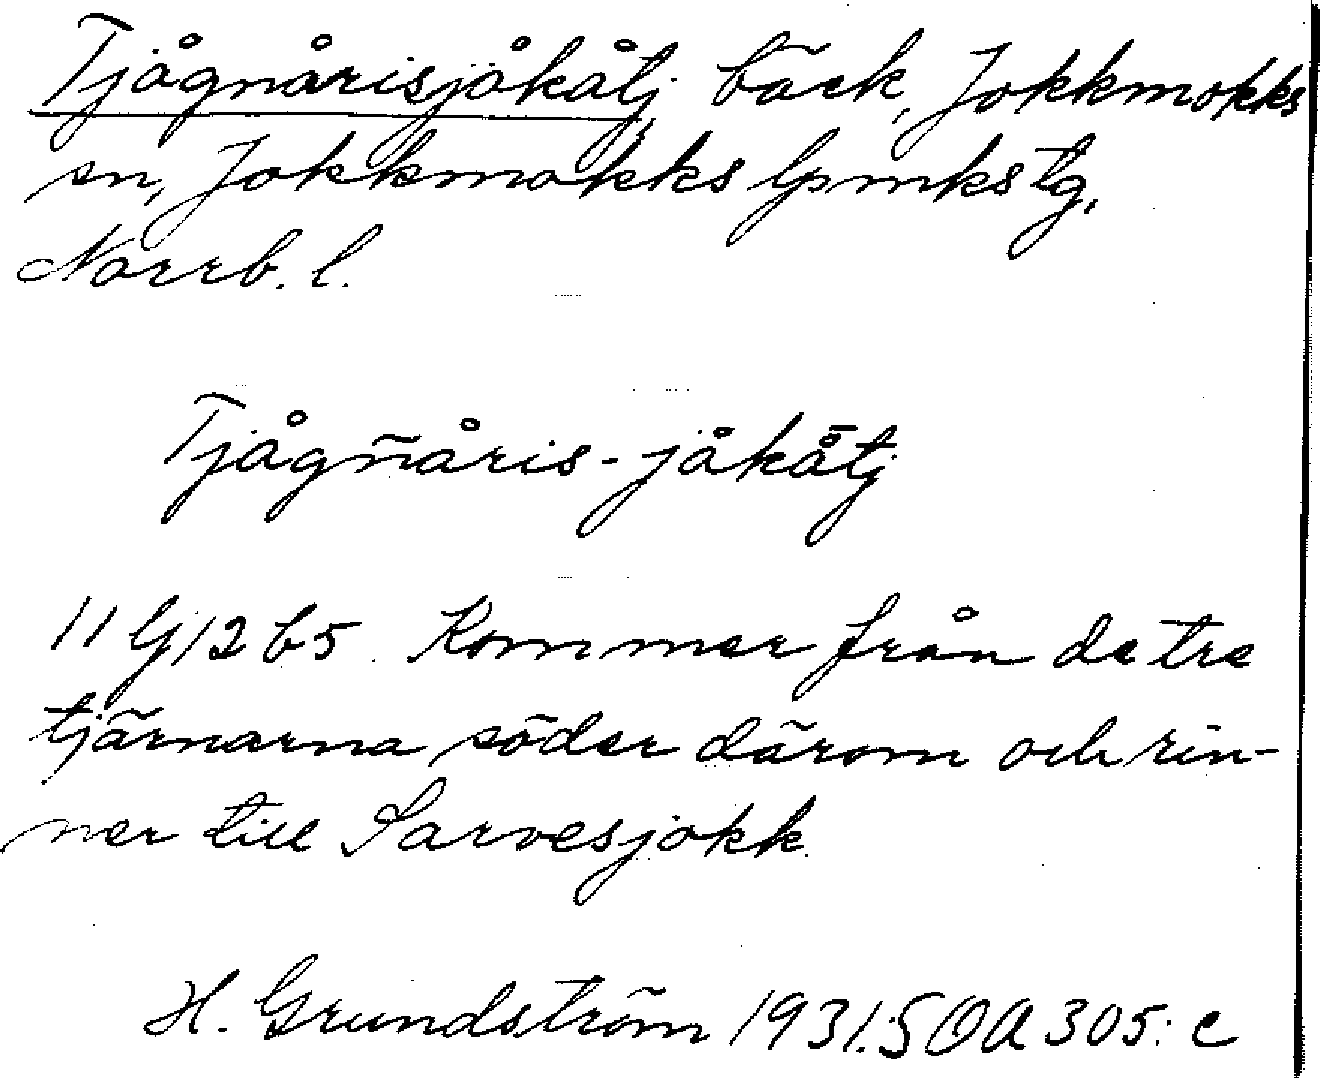 Tjågnårisjåkåtj bäck, Jokkmokks
sn, Jokkmokks lpmks tg,
Norrb. l.
Tjågñåris-jåkå̄tj
11 G/2 b5. Kommer från de tre
tjärnarna söder därom och rin-
ner till Sarvesjokk.
H. Grundström 1931. SOA 305: c